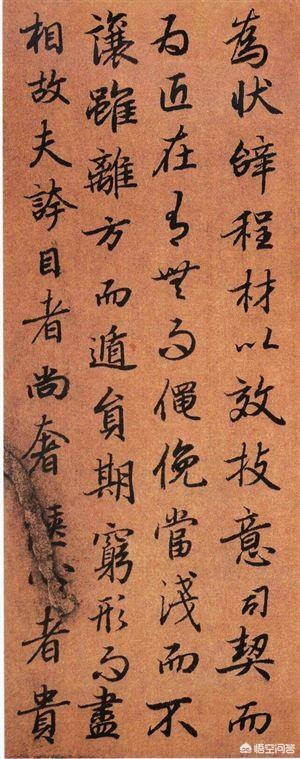 為狀辭程材以效技意司契而
為匠在有無而僶俛當淺而不
讓雖離方而遁員期窮形而盡
相故夫誇目者尚奢愜心者貴
悟空问答